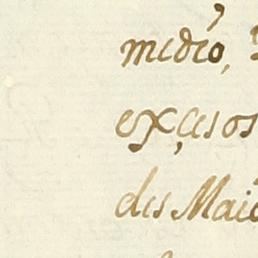 medio,
exçesos
des Maio